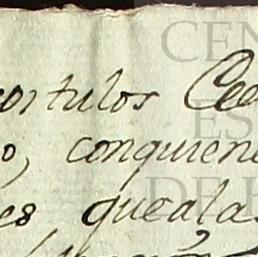 ortulos Ced
o, conquiene
es quealas
CEN
ES
DE